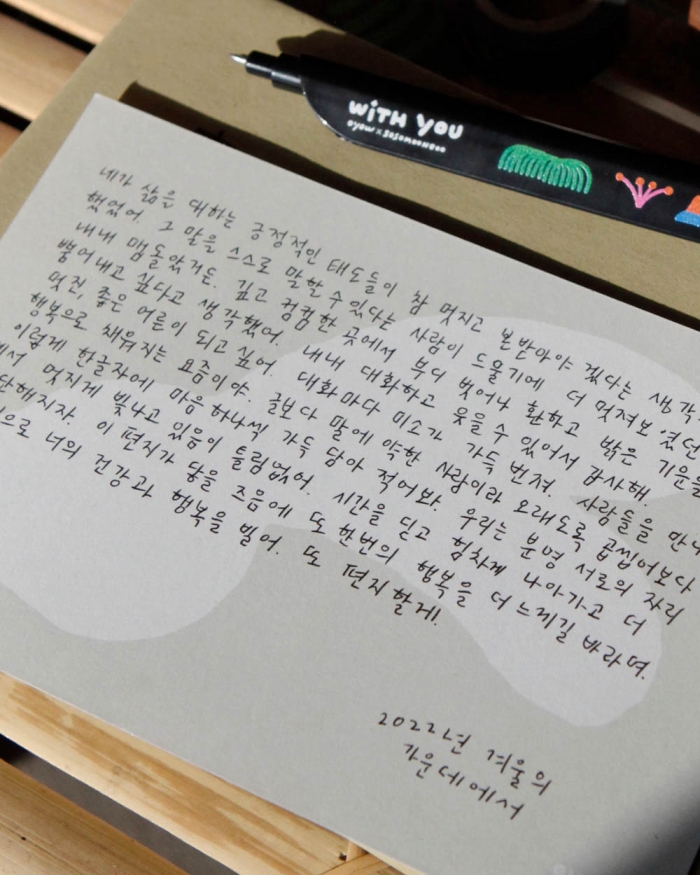 WITH YOU
oyow x sosomoonooo
네가 삶을 대하는 긍정적인 태도들이 참 멋지고 본받아야 겠다는 생각
했었어. 그 말을 스스로 말할 수 있다는 사람이 드물기에 더 멋져보였던
내내 맴돌았거든. 깊고 컴컴한 곳에서 부디 벗어나 환하고 밝은 기운을
뿜어내고 싶다고 생각했어. 내내 대화하고 웃을 수 있어서 감사해.
멋진, 좋은 어른이 되고 싶어. 대화마다 미소가 가득 번져. 사람들을 만나
행복으로 채워지는 요즘이야. 글보다 말에 약한 사람이라 오래도록 곱씹어보다
이렇게 한글자에 마음 하나씩 가득 담아 적어봐. 우리는 분명 서로의 자리
에서 멋지게 빛나고 있음이 틀림없어. 시간을 딛고 힘차게 나아가고 더
단해지자. 이 편지가 닿을 즈음에 또 한번의 행복을 더 느끼길 바라며.
으로 너의 건강과 행복을 빌어. 또 편지할게!
2022년 겨울의
가운데에서